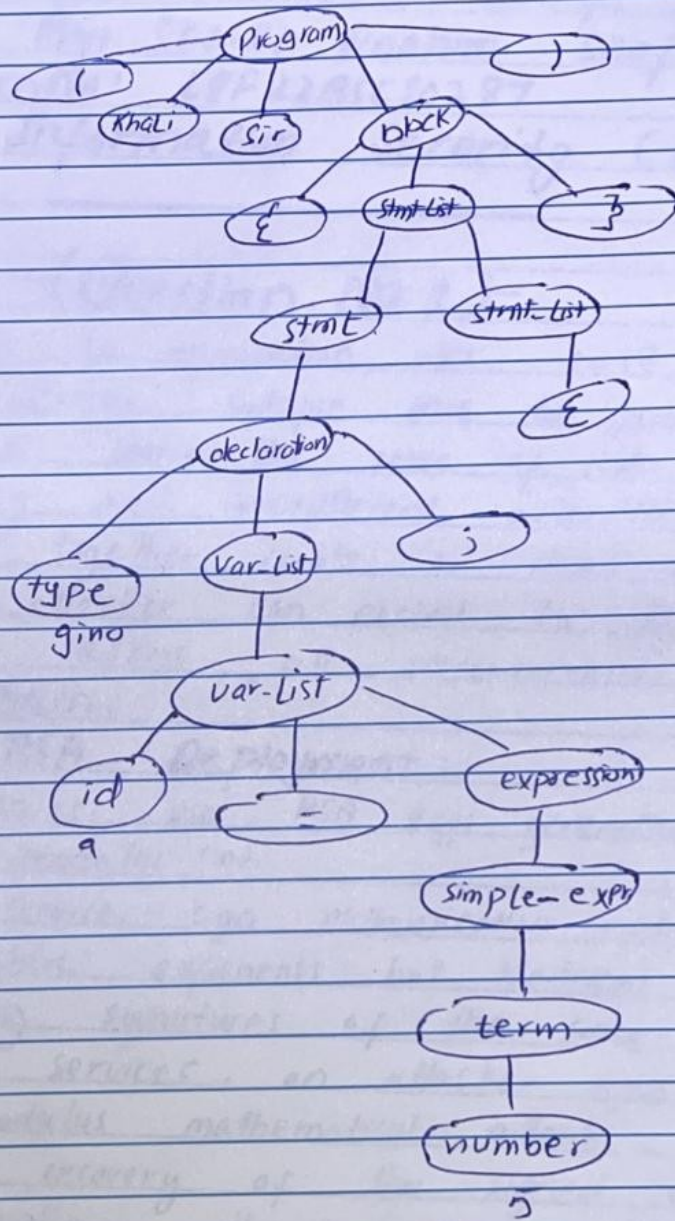 program
( )
Khali sir block
{ stmt-List }
stmt stmt-List
ε
declaration
type var-List ;
gino
var-List
id = expression
a
simple-expr
term
number
5